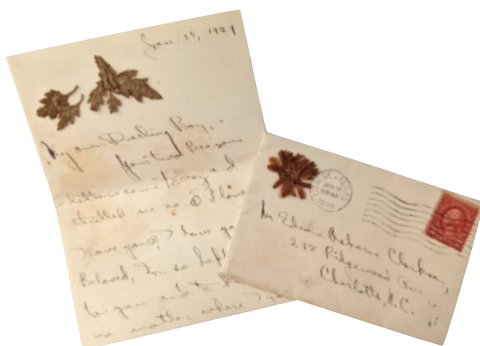 Jan. 15, 1929
My own Darling Boy,
Your two precious
letters came today and
thrilled me so
I love you, I love you
Beloved, I'm so
to you and
no matter where
Mr. Edwin Osborne Clarkson,
218 Ridgewood Ave.
Charlotte, N.C.